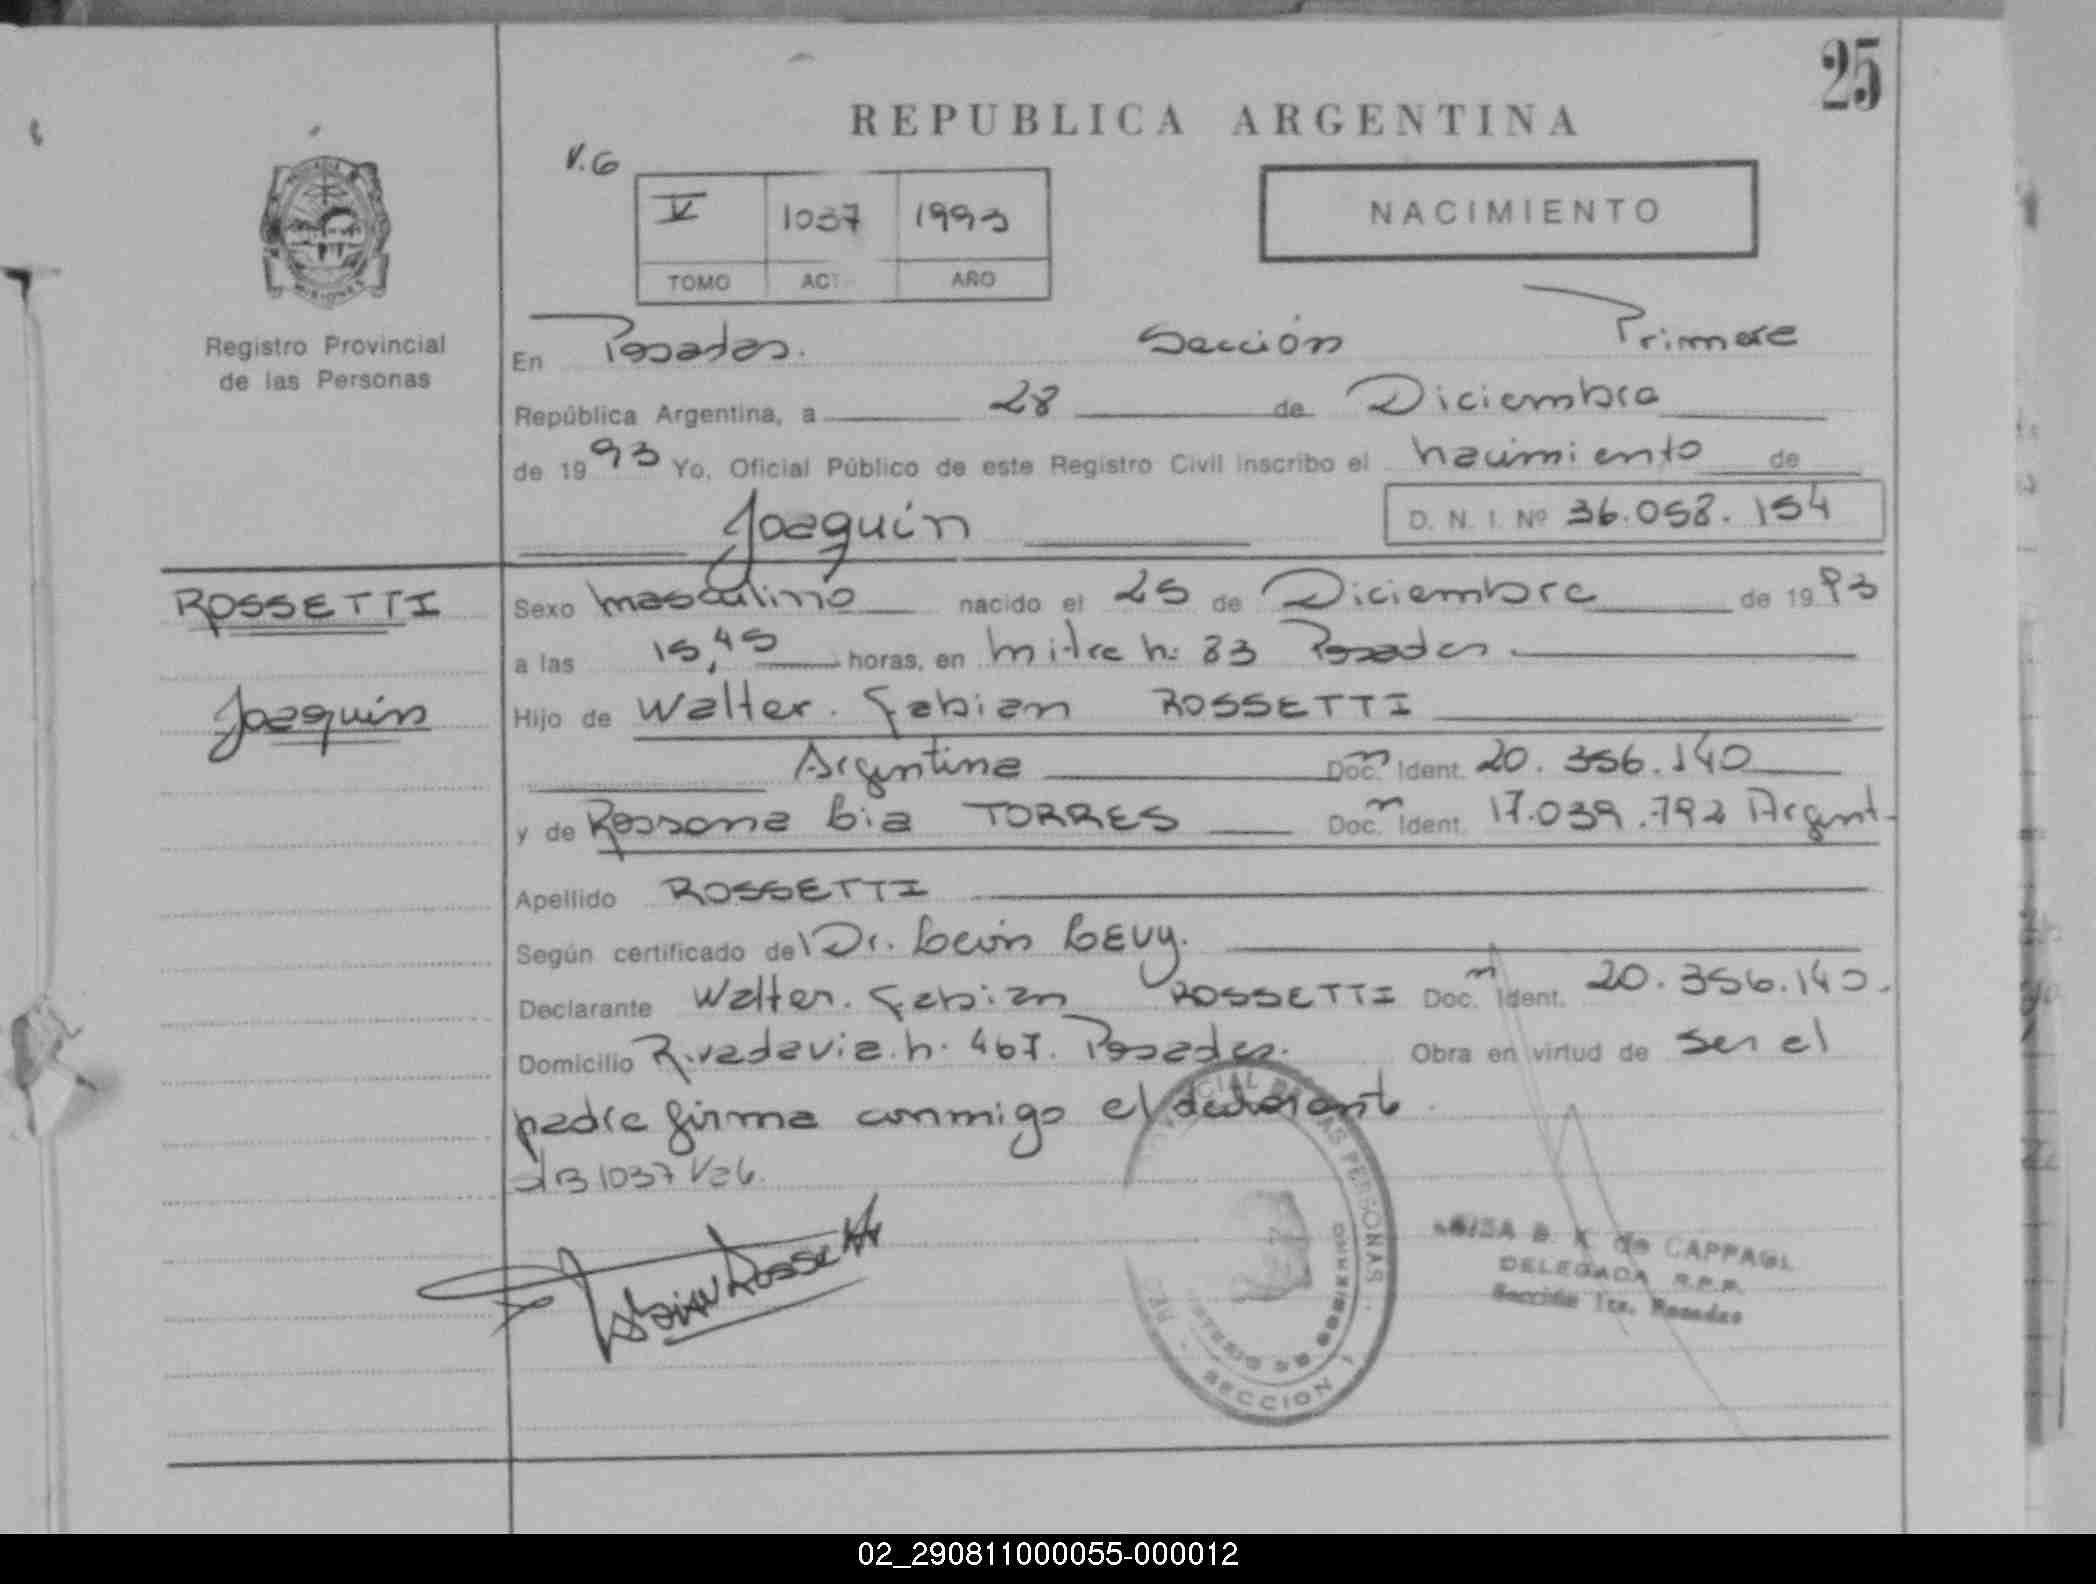 25
REPUBLICA ARGENTINA
V.6
V 1037 1993
TOMO ACT. AÑO
NACIMIENTO
MISIONES
Registro Provincial
de las Personas
En Posadas. Sección Primera
República Argentina, a 28 de Diciembre
de 1993 Yo, Oficial Público de este Registro Civil inscribo el nacimiento de
Joaquín D. N. I. Nº 36.058.154
ROSSETTI
Joaquín
Sexo masculino nacido el 25 de Diciembre de 1993
a las 15,45 horas, en Mitre h. 83 Posadas
Hijo de Walter. Fabian ROSSETTI
Argentina Doc. Ident. 20.356.140
y de Rossana Lia TORRES Doc. Ident. 17.039.792 Argent.
Apellido ROSSETTI
Según certificado del Dr. León LEVY.
Declarante Walter. Fabian ROSSETTI Doc. Ident. 20.356.140.
Domicilio Rivadavia. h. 467. Posadas. Obra en virtud de ser el
padre firma conmigo el declarante.
1037 V
Fabian Rossetti
CIAL DE LAS PERSONAS
SECCION 1
B. K de CAPPAGL
DELEGADA R.P.P.
Sección 1ra. Posadas
02_290811000055-000012